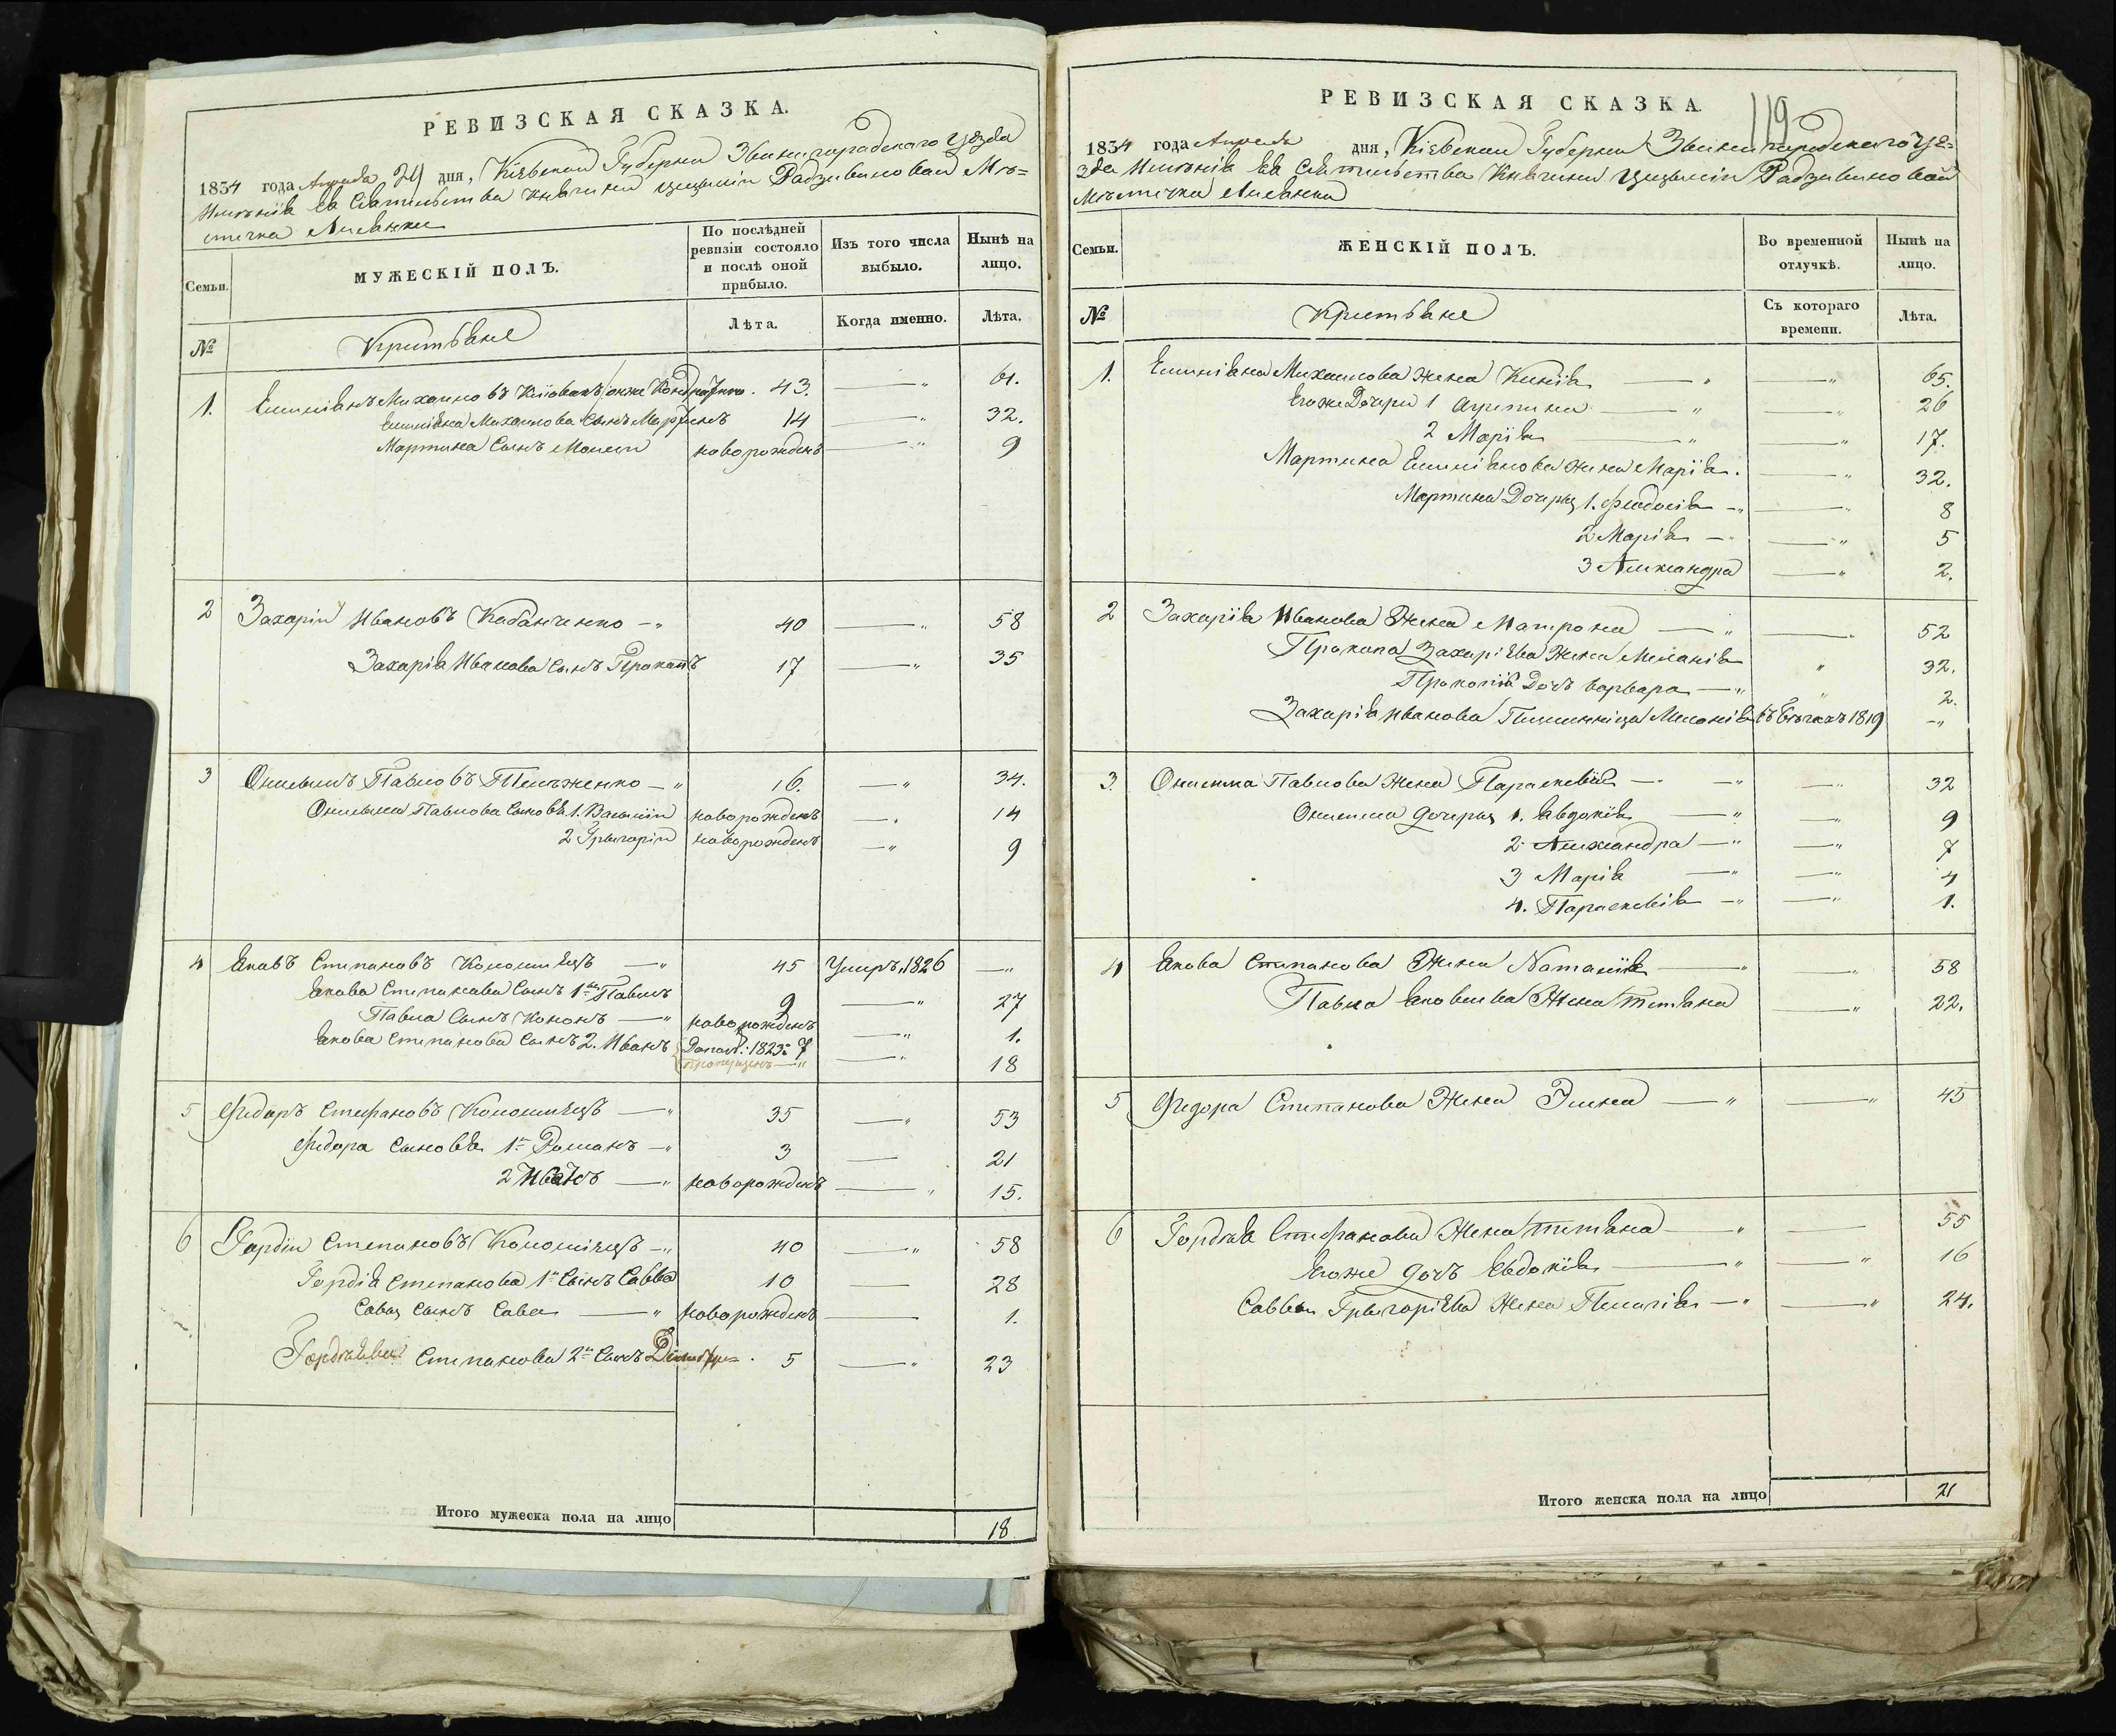 РЕВИЗСКАЯ СКАЗКА.
1834 года Апреля 24 дня, Кіевской Губерніи Звенигородскаго уезда
Именія Ея Сіятельства Княгини Цециліи Радзивиловой Мѣ=
стечка Лисянки
Семьи.
МУЖЕСКІЙ ПОЛЪ.
По послѣдней ревизіи состояло и послѣ оной прибыло.
Изъ того числа выбыло.
Нынѣ на лицо.
№
Крестьяне
Лѣта.
Когда именно.
Лѣта.
1. Емиліянъ Михайловъ онже 43. —„ 61.
Емиліяна Михайлова Сынъ Мартинъ 14 —„ 32.
Мартина Сынъ Моисей новорожденъ —„ 9
2 Захарій Ивановъ Кабанченко —„ 40 —„ 58
Захарія Иванова сынъ Прокопъ 17 —„ 35
3 Онисимъ Павловъ —„ 16. —„ 34.
Онисима Павлова Сыновья 1. Василій новорожденъ —„ 14
2 Григорій новорожденъ —„ 9
4 Яковъ Степановъ Коломіецъ —„ 45 Умеръ 1826 —„
Якова Степанова Сынъ 1й Павелъ 9 —„ 27
Павла Сынъ Кононъ —„ новорожденъ —„ 1.
Якова Степанова Сынъ 2. Иванъ 1823: 7 —„ 18
Пропущенъ —„
5 Фидоръ Стефановъ Коломіецъ —„ 35 —„ 53
Фидора Сыновья 1й Романъ —„ 3 — 21
2 Иванъ —„ новорожденъ —„ 15.
6 Гордій Степановъ Коломіецъ —„ 40 —„ 58
Гордія Степанова 1й Сынъ Савва 10 — 28
Савы Сынъ Сава —„ новорожденъ — 1.
Степанова 2й Сынъ 5 —„ 23
Итого мужеска пола на лицо 18
РЕВИЗСКАЯ СКАЗКА.
119
1834 года Апреля дня, Кіевской Губерніи Звенигородскаго уѣ=
зда Именія Ея Сіятельства Княгини Цециліи Радзивиловой
Мѣстечка Лисянки
Семьи.
ЖЕНСКІЙ ПОЛЪ.
Во временной отлучкѣ.
Нынѣ на лицо.
№
Крестьяне
Съ котораго времени.
Лѣта.
1. Емиліяна Михайлова жена —„ —„ 65.
Егоже Дочери 1 Агрипина —„ —„ 26
2 Марія —„ —„ 17.
Мартина Емиліянова жена Марія. —„ 32.
Мартина Дочеры 1. Феодосія —„ —„ 8
2 Марія —„ —„ 5
3 Александра —„ 2.
2 Захарія Иванова Жена Матрона —„ —„ 52
Прокопа Захаріева Жена Меланія „ 32.
Прокопія Дочъ Варвара —„ „ 2.
Захарія Иванова Племянница Меланія въ бѣгахъ 1819 —„
3. Онисима Павлова Жена Параскевія —„ —„ —„ 32
Онисима дочеры 1. Авдокія —„ —„ 9
2. Александра —„ —„ 7
3 Марія —„ —„ 4
4. Параскевія —„ —„ 1.
4 Якова Степанова Жена Наталія —„ —„ 58
Павла Яковлева Жена Тетяна —„ 22.
5 Федора Степанова Жена Элена —„ —„ 45
6 Стефанова Жена Тетяна —„ — 55
Егоже дочъ Евдокія —„ —„ 16
Саввы Григоріева Жена Пелагія —„ —„ 24.
Итого женска пола на лицо 21